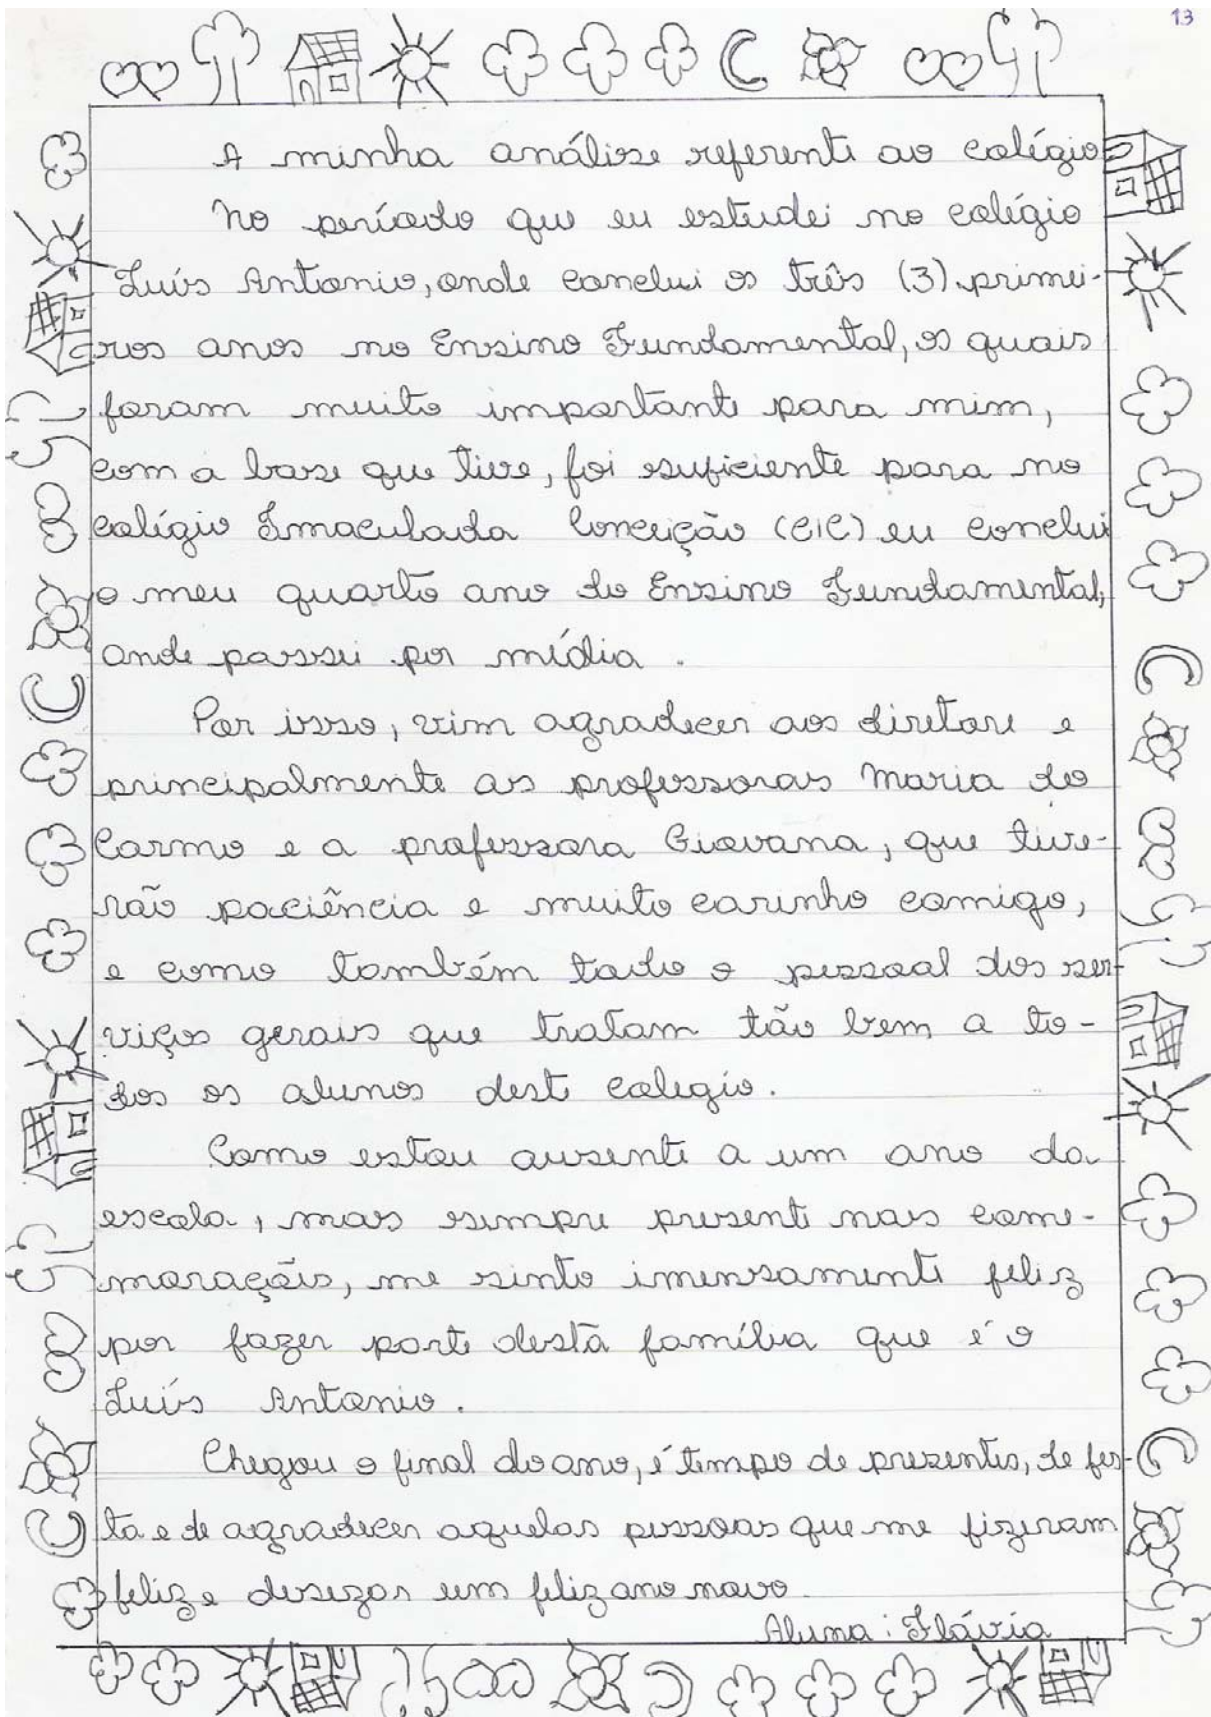 13
A minha análise referente ao colégio
No período que eu estudei no colégio
Luís Antonio, onde conclui os três (3) primei-
ros anos no Ensino Fundamental, os quais
foram muito importante para mim,
com a base que tive, foi suficiente para no
colégio Imaculada Conceição (CIC) eu conclui
o meu quarto ano do Ensino Fundamental,
onde passei por média.
Por isso, vim agradecer aos diretore e
principalmente as professoras Maria do
Carmo e a professora Giovana, que tive-
rão paciência e muito carinho comigo,
e como também todo o pessoal dos ser-
viços gerais que tratam tão bem a to-
dos os alunos deste colegio.
Como estou ausente a um ano da
escola, mas sempre presente nas come-
morações, me sinto imensamente feliz
por fazer parte desta família que é o
Luís Antonio.
Chegou o final do ano, é tempo de presentes, de fes-
ta e de agradecer aquelas pessoas que me fizeram
feliz e desejar um feliz ano novo.
Aluna: Flávia